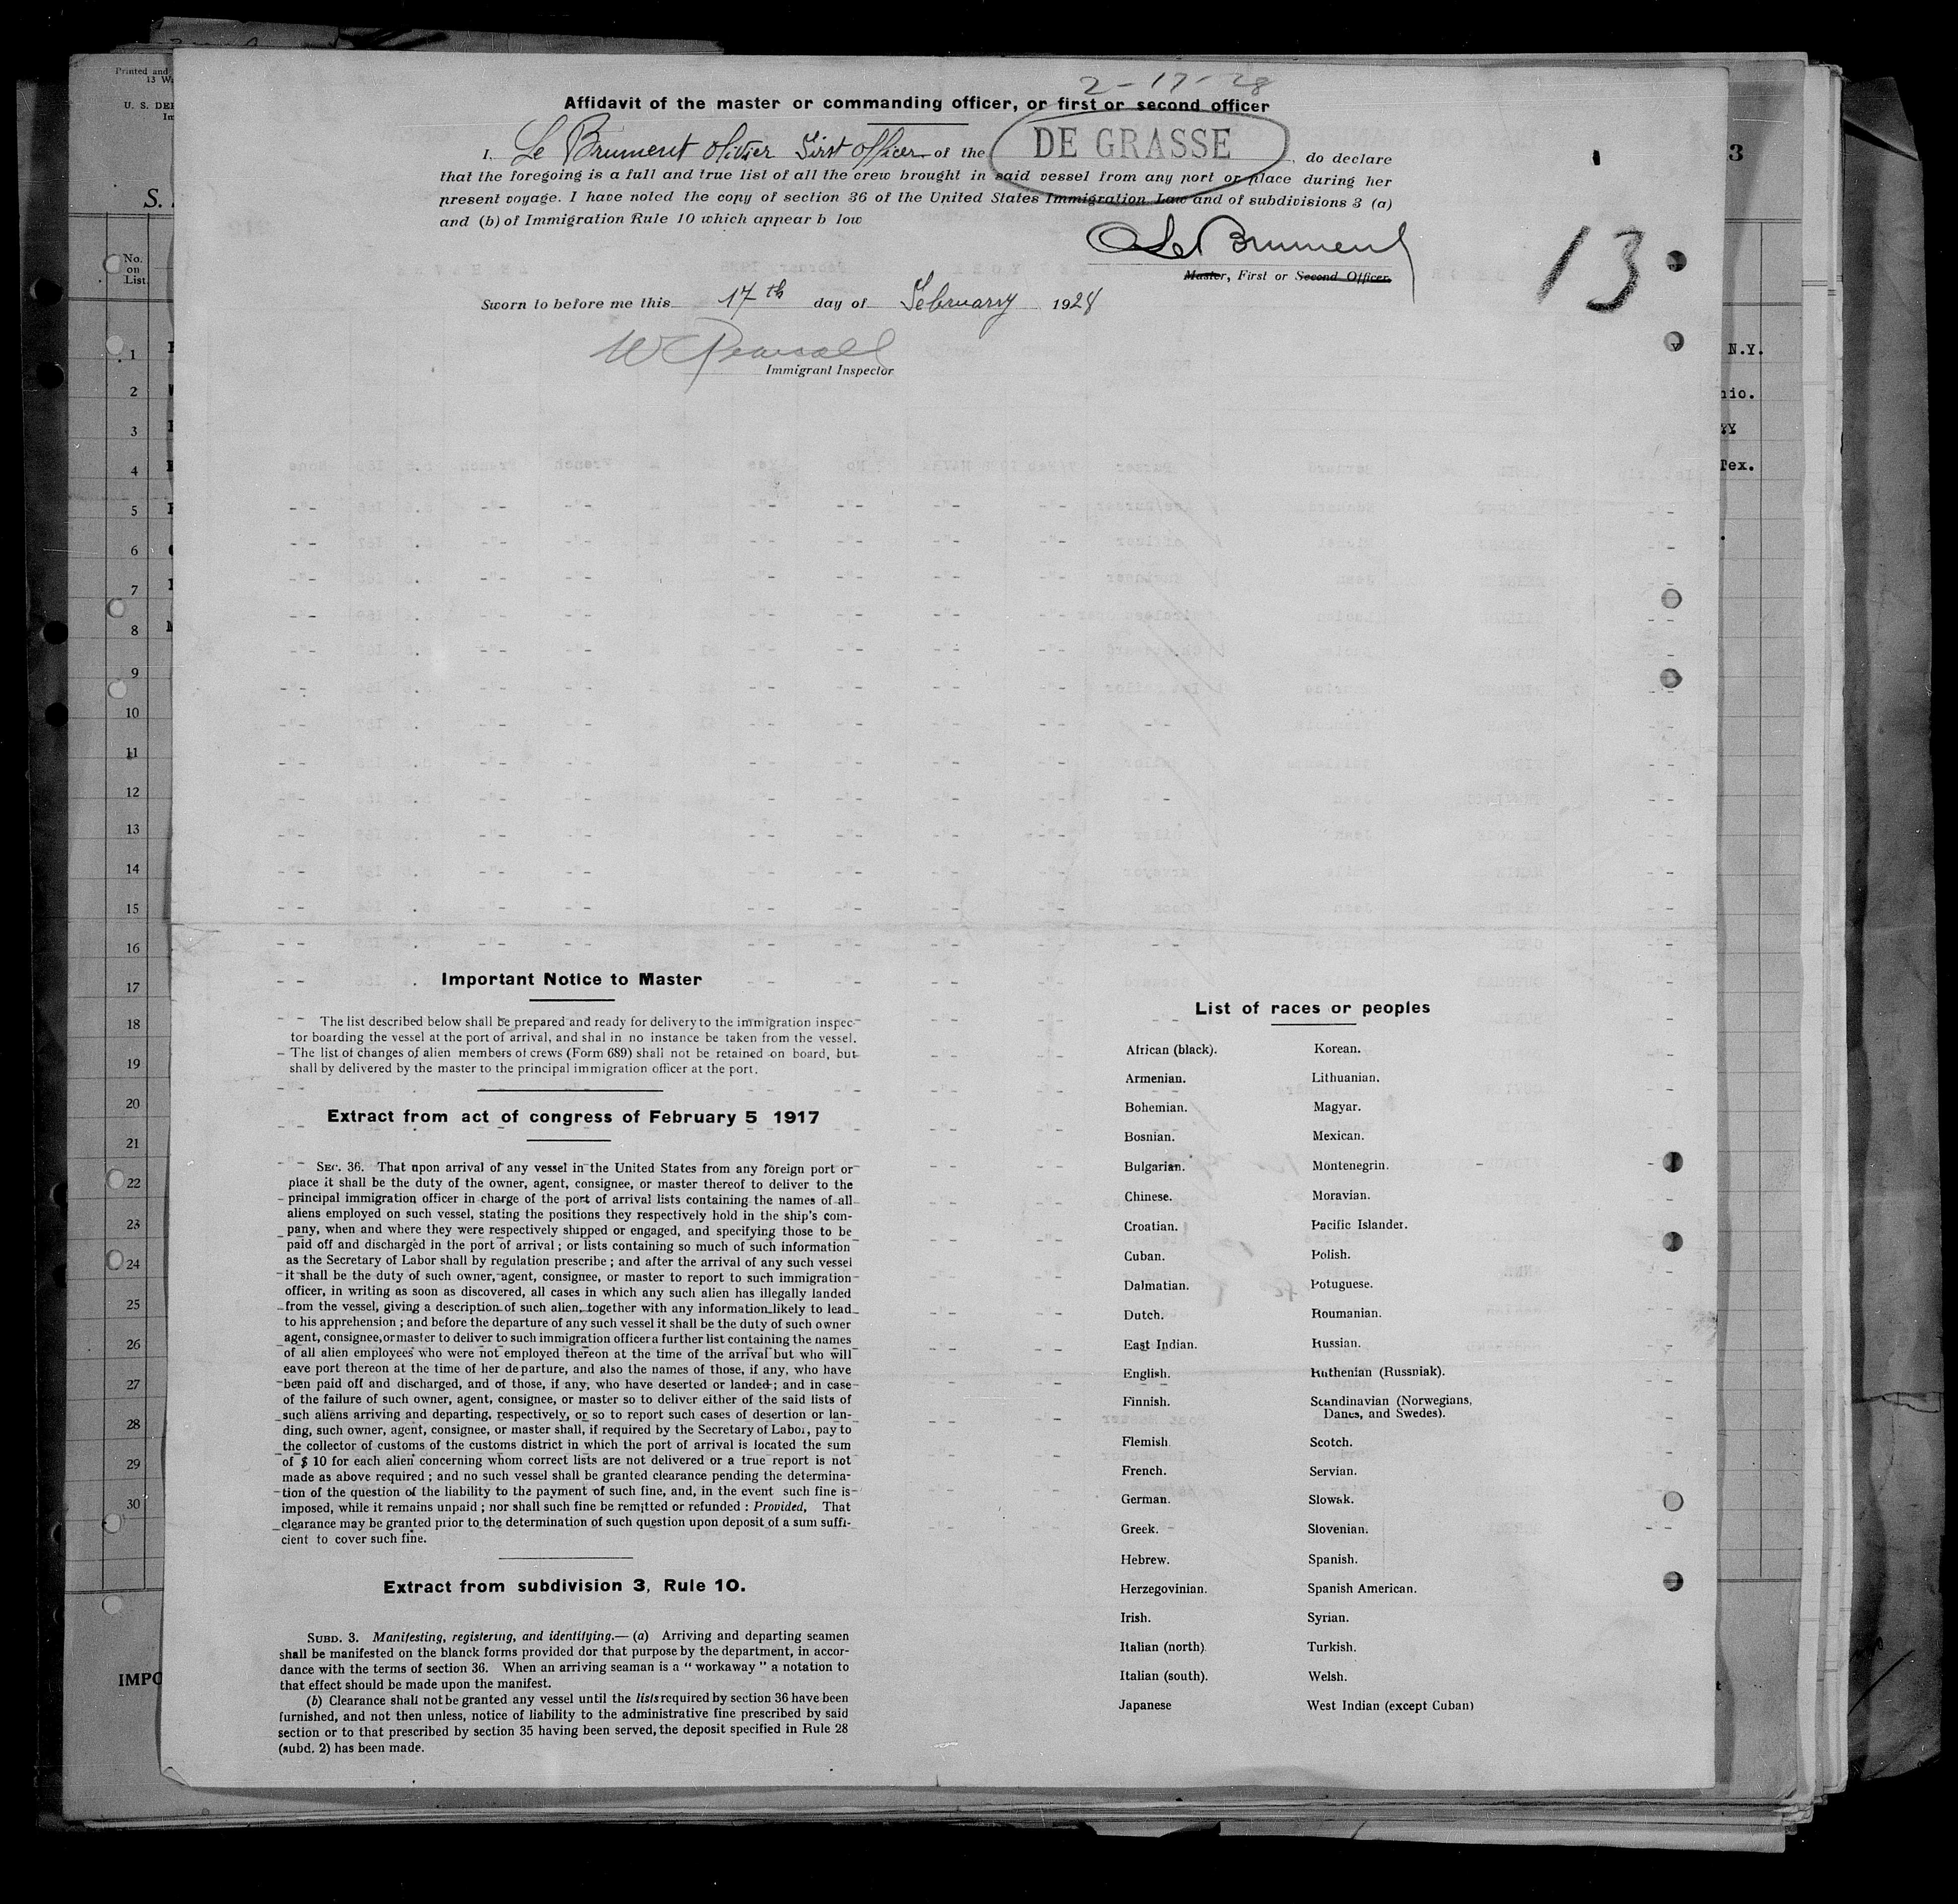 2-17-28
Affidavit of the master or commanding officer, or first or second officer
I, Le Brument Olivier First Officer of the DE GRASSE, do declare
that the foregoing is a full and true list of all the crew brought in said vessel from any port or place during her
present voyage. I have noted the copy of section 36 of the United States Immigration Law and of subdivisions 3 (a)
and (b) of Immigration Rule 10 which appear b low
O Le Brument
Master, First or Second Officer.
13
Sworn to before me this 17th day of February 1928
Immigrant Inspector
Printed and
13 W
U. S. DE
S.
No.
on
List
1
2
3
4
5
6
7
8
9
10
11
12
13
14
15
16
17
18
19
20
21
22
23
24
25
26
27
28
29
30
IMPO
3
N.Y.
hio.
YY
Tex.
Important Notice to Master
The list described below shall be prepared and ready for delivery to the immigration inspec-
tor boarding the vessel at the port of arrival, and shal in no instance be taken from the vessel.
The list of changes of alien members of crews (Form 689) shall not be retained on board, but
shall by delivered by the master to the principal immigration officer at the port.
Extract from act of congress of February 5 1917
SEC. 36. That upon arrival of any vessel in the United States from any foreign port or
place it shall be the duty of the owner, agent, consignee, or master thereof to deliver to the
principal immigration officer in charge of the port of arrival lists containing the names of all
aliens employed on such vessel, stating the positions they respectively hold in the ship's com-
pany, when and where they were respectively shipped or engaged, and specifying those to be
paid off and discharged in the port of arrival ; or lists containing so much of such information
as the Secretary of Labor shall by regulation prescribe ; and after the arrival of any such vessel
it shall be the duty of such owner, agent, consignee, or master to report to such immigration
officer, in writing as soon as discovered, all cases in which any such alien has illegally landed
from the vessel, giving a description of such alien, together with any information likely to lead
to his apprehension ; and before the departure of any such vessel it shall be the duty of such owner
agent, consignee, or master to deliver to such immigration officer a further list containing the names
of all alien employees who were not employed thereon at the time of the arrival but who will
eave port thereon at the time of her departure, and also the names of those, if any, who have
been paid off and discharged, and of those, if any, who have deserted or landed ; and in case
of the failure of such owner, agent, consignee, or master so to deliver either of the said lists of
such aliens arriving and departing, respectively, or so to report such cases of desertion or lan-
ding, such owner, agent, consignee, or master shall, if required by the Secretary of Labor, pay to
the collector of customs of the customs district in which the port of arrival is located the sum
of $ 10 for each alien concerning whom correct lists are not delivered or a true report is not
made as above required ; and no such vessel shall be granted clearance pending the determina-
tion of the question of the liability to the payment of such fine, and, in the event such fine is
imposed, while it remains unpaid ; nor shall such fine be remitted or refunded : Provided, That
clearance may be granted prior to the determination of such question upon deposit of a sum suffi-
cient to cover such fine.
Extract from subdivision 3, Rule 10.
SUBD. 3. Manifesting, registering, and identifying.— (a) Arriving and departing seamen
shall be manifested on the blanck forms provided dor that purpose by the department, in accor-
dance with the terms of section 36. When an arriving seaman is a “ workaway ” a notation to
that effect should be made upon the manifest.
(b) Clearance shall not be granted any vessel until the lists required by section 36 have been
furnished, and not then unless, notice of liability to the administrative fine prescribed by said
section or to that prescribed by section 35 having been served, the deposit specified in Rule 28
(subd. 2) has been made.
List of races or peoples
African (black).
Armenian.
Bohemian.
Bosnian.
Bulgarian.
Chinese.
Croatian.
Cuban.
Dalmatian.
Dutch.
East Indian.
English.
Finnish.
Flemish
French.
German.
Greek.
Hebrew.
Herzegovinian.
Irish.
Italian (north)
Italian (south).
Japanese
Korean.
Lithuanian.
Magyar.
Mexican.
Montenegrin.
Moravian.
Pacific Islander.
Polish.
Potuguese.
Roumanian.
Russian.
Ruthenian (Russniak).
Scandinavian (Norwegians,
Danes, and Swedes).
Scotch.
Servian.
Slowak.
Slovenian.
Spanish.
Spanish American.
Syrian.
Turkish.
Welsh.
West Indian (except Cuban)